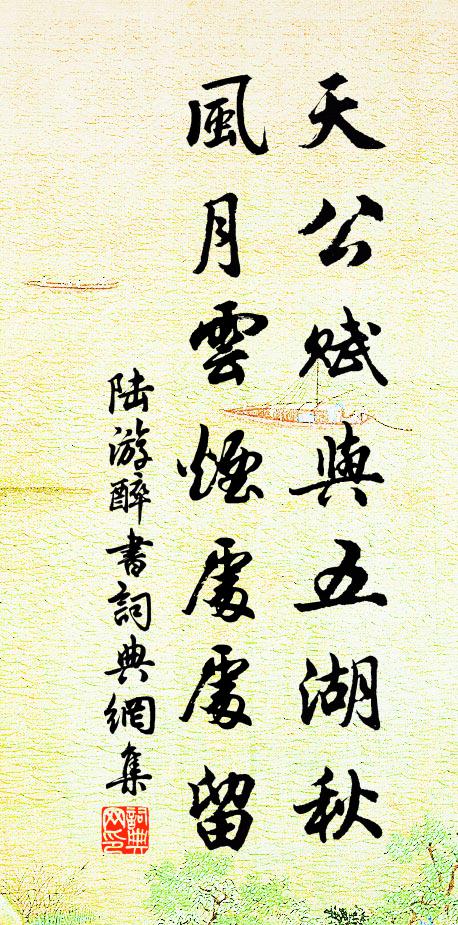 天公賦與五湖秋
風月雲煙處處留
陸游醉書詞典網集
詞典網印